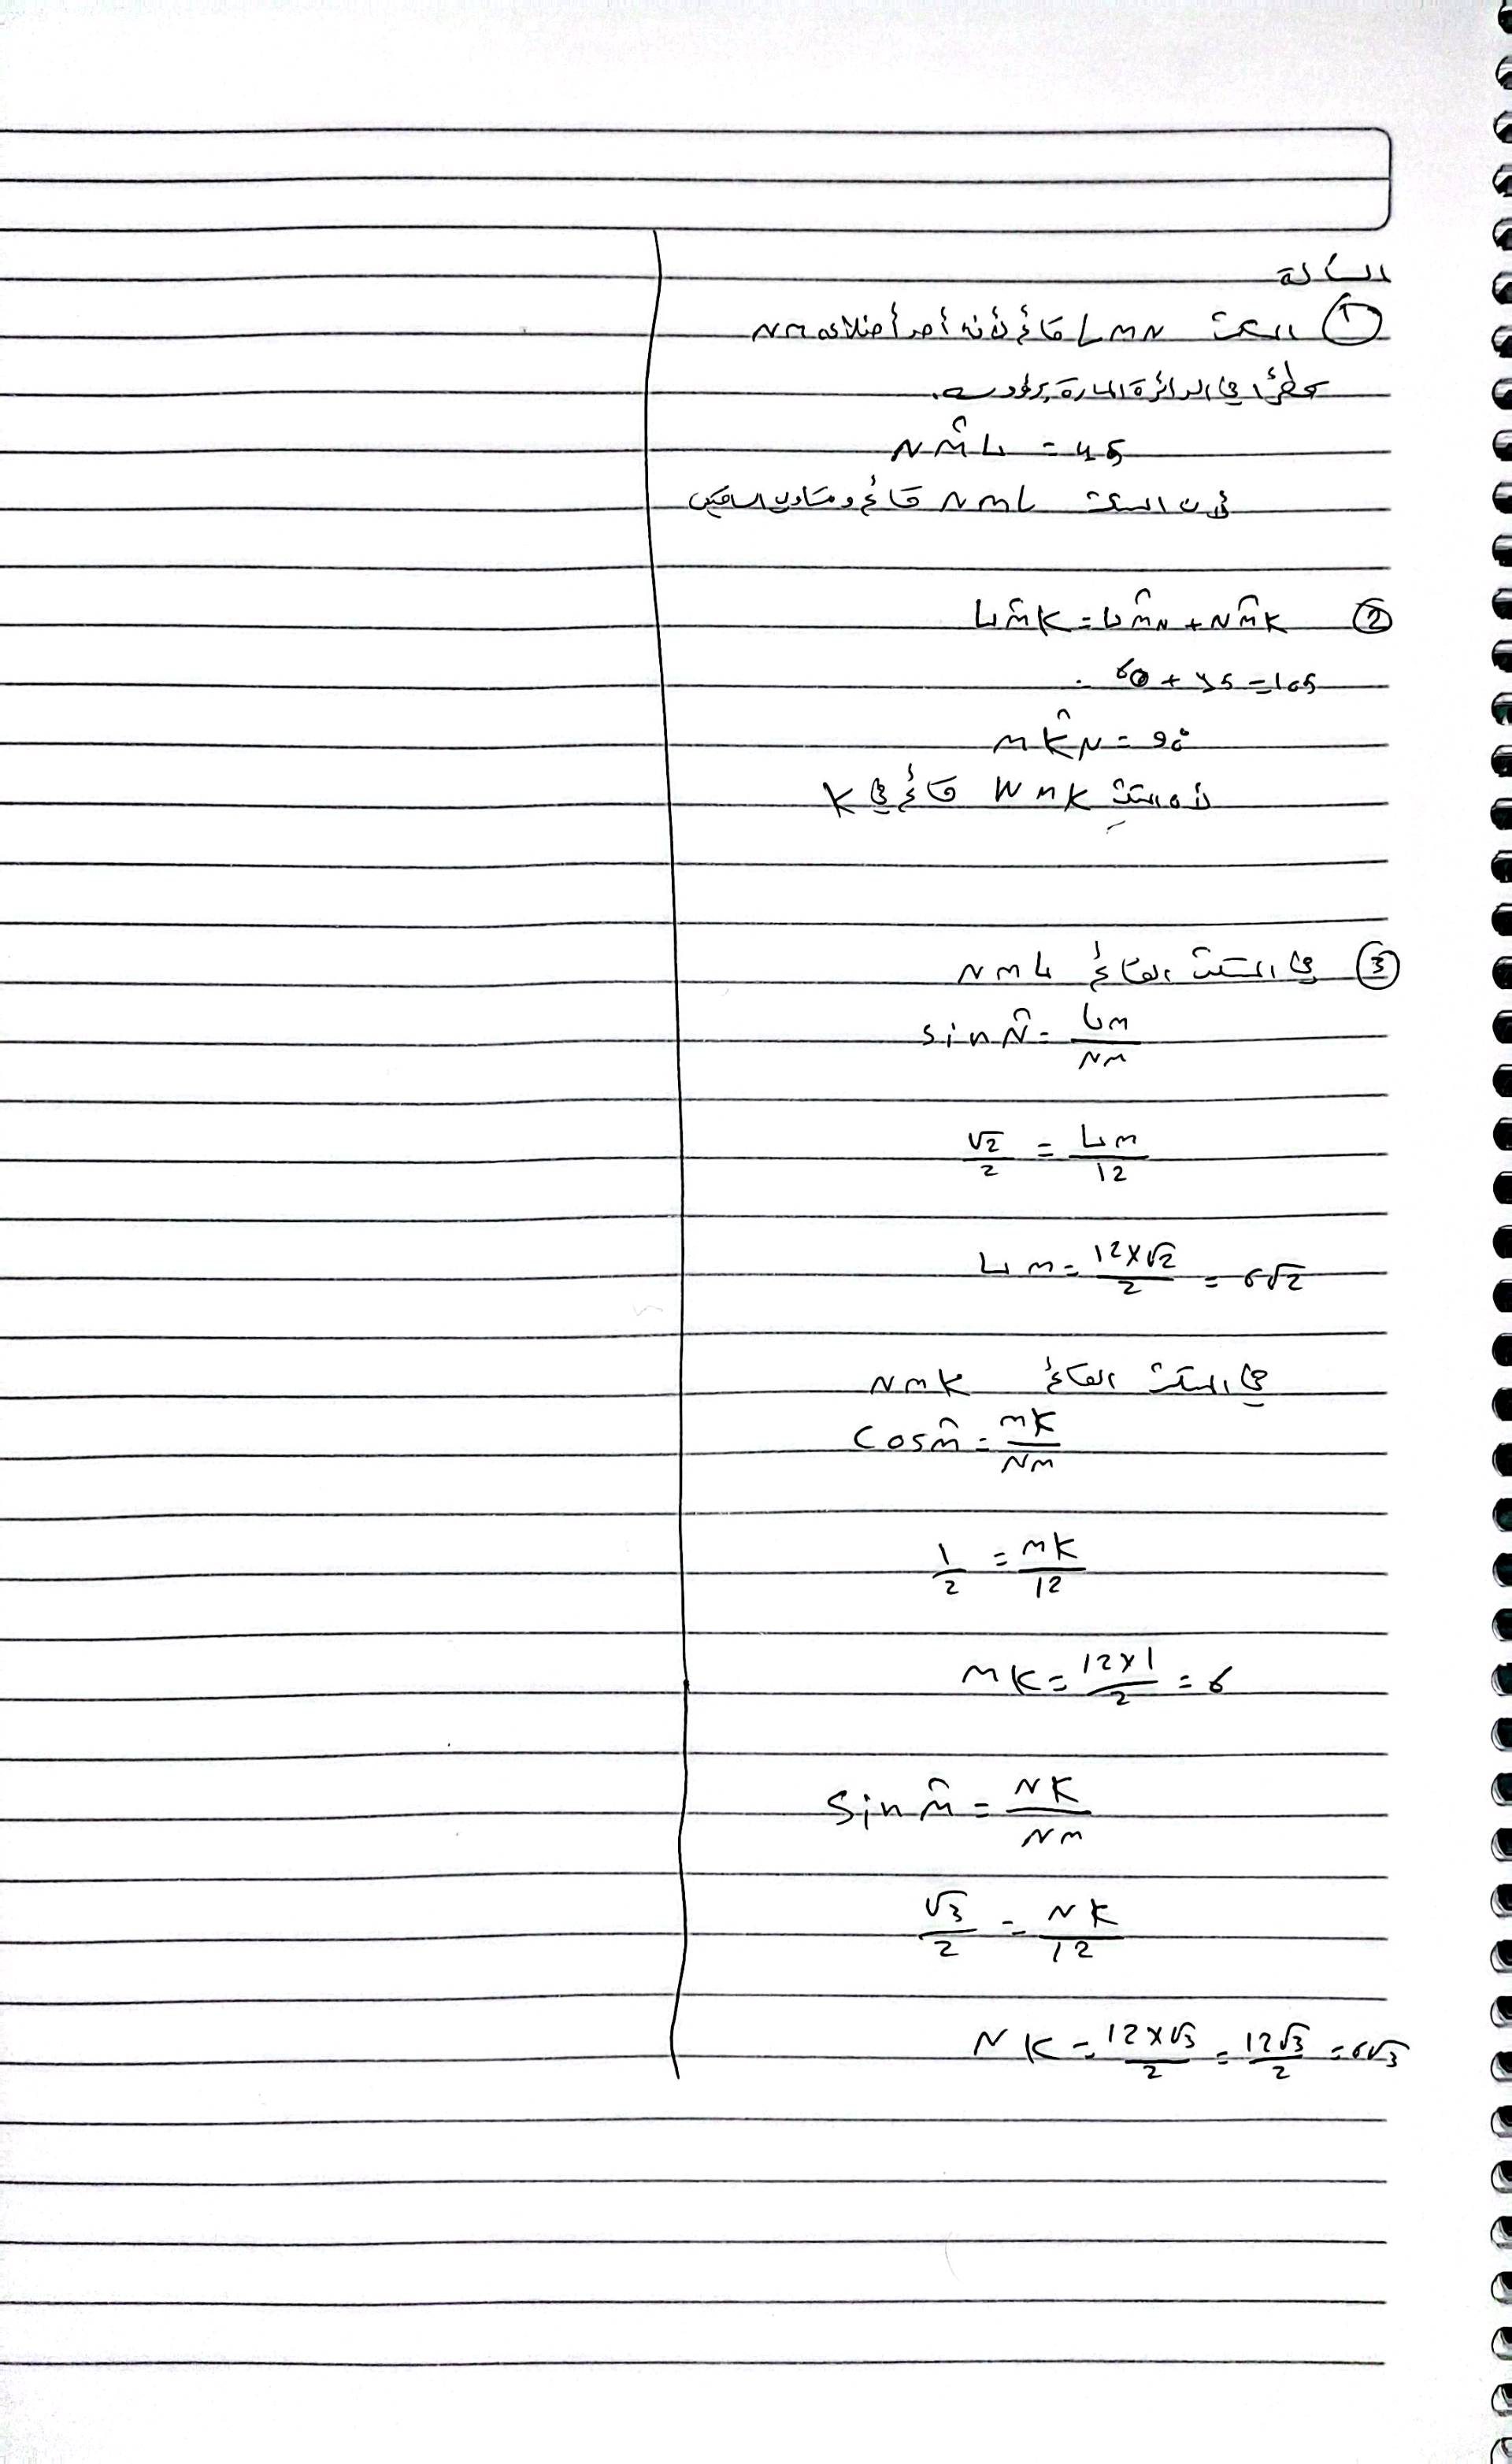 المسألة
① المثلث LMN قائم لأنه أحد أضلاعه NM
قطرًا في الدائرة المارة برؤوسه.
NM̂L = 45
لأن المثلث NML قائم ومتساوي الساقين
② LM̂K = LM̂N + NM̂K
60 + 45 = 105
MK̂N = 90°
لأن المثلث NMK قائم في K
③ في المثلث القائم NML
sin N̂ = LM/NM
√2/2 = LM/12
LM = 12×√2/2 = 6√2
في المثلث القائم NMK
Cos M̂ = MK/NM
1/2 = MK/12
MK = 12×1/2 = 6
Sin M̂ = NK/NM
√3/2 = NK/12
NK = 12×√3/2 = 12√3/2 = 6√3